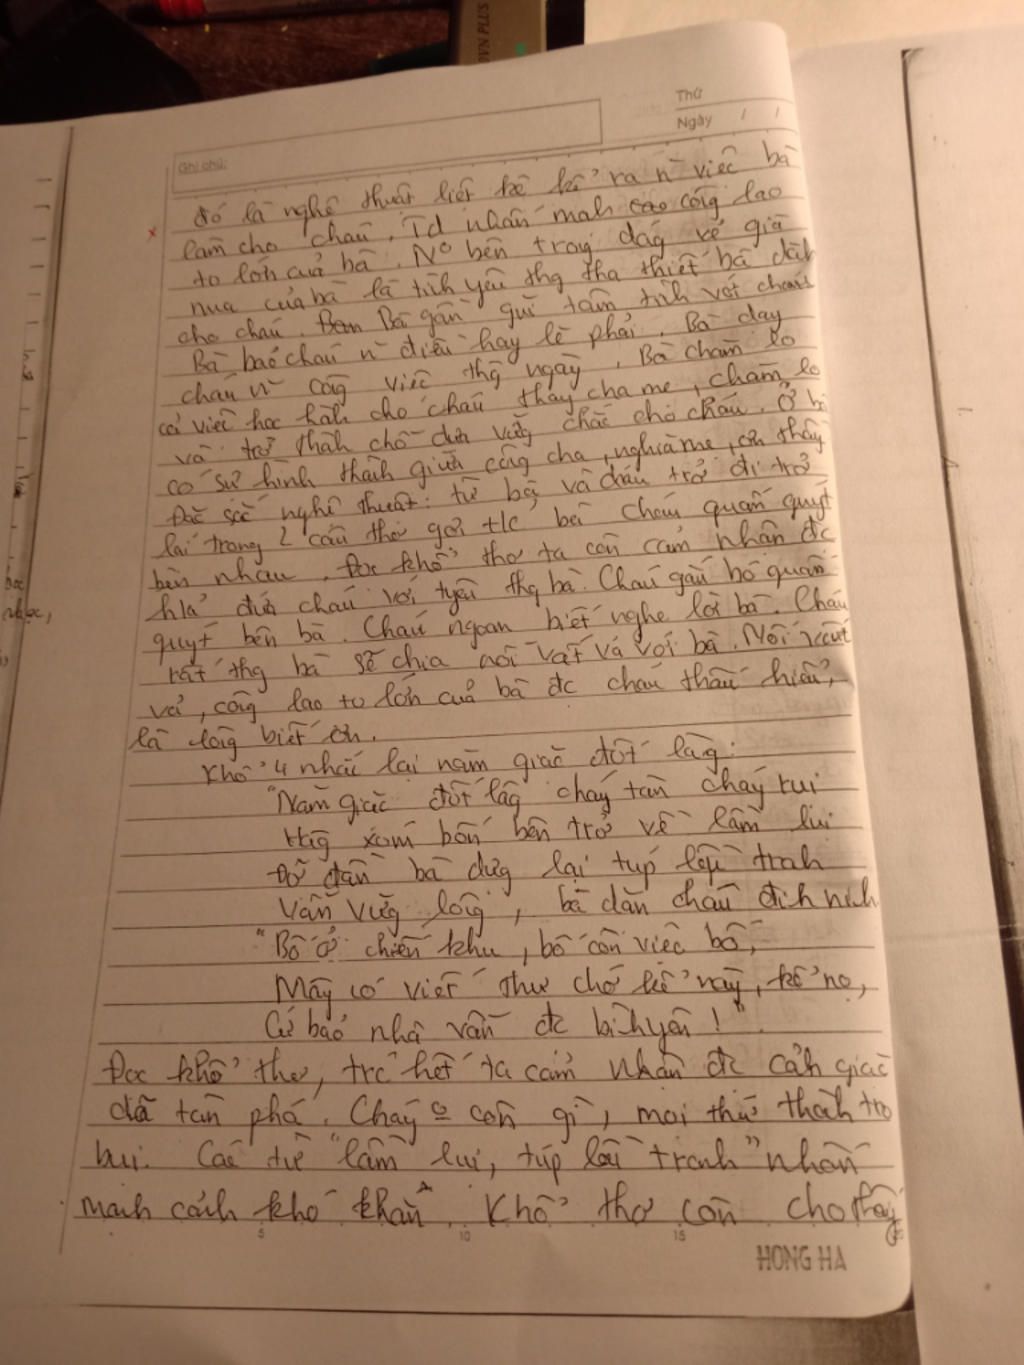 VN PLUS
Thứ
Ngày / /
Ghi chú:
đó là nghệ thuật liệt kê kể ra n~ việc bà
làm cho cháu. Td nhấn mạh công lao
to lớn của bà. No bên trog dág vẻ già
nua của bà là tìh yêu thg tha thiết bà dàh
cho cháu. Bà gần gũi tâm tìh với cháu
Bà bảo cháu n~ điều hay lẽ phải. Bà dạy
cháu n~ côg việc thg ngày. Bà chăm lo
cả việc học hàh cho cháu thay cha mẹ, chăm lo
và trở thàh chỗ dựa vữg chắc cho cháu. Ở bà
có sự hình thàh giữa côg cha, nghĩa mẹ, ơn thầy
Đặc sắc nghệ thuật: từ bà và cháu trở đi trở
lại trong 2 câu thơ gợi t/c bà cháu quấn quýt
bên nhau. Đọc khổ thơ ta còn cảm nhận đc
h/ả đứa cháu với tyêu thg bà. Cháu gắn bó quấn
quýt bên bà. Cháu ngoan biết nghe lời bà. Cháu
rất thg bà sẽ chia nỗi vất vả với bà. Nỗi vất
vả, côg lao to lớn của bà đc cháu thấu hiểu,
là lòg biết ơn.
Khổ 4 nhắc lại năm giặc đốt làg:
"Năm giặc đốt làg cháy tàn cháy rụi
Hàg xóm bốn bên trở về lầm lụi
Đỡ đần bà dựg lại túp lều trah
Vẫn vữg lòg, bà dặn cháu đih nih
"Bố ở chiến khu, bố còn việc bố,
Mày có viết thư chớ kể này, kể nọ,
Cứ bảo nhà vẫn đc bìh yên!"
Đọc khổ thơ, trc hết ta cảm nhận đc cảh giặc
đã tàn phá. Cháy o còn gì, mọi thứ thàh tro
bụi. Các từ "lầm lụi, túp lều tranh" nhấn
mạnh cảnh khó khăn. Khổ thơ còn cho thấy
5 10 15
HONG HA